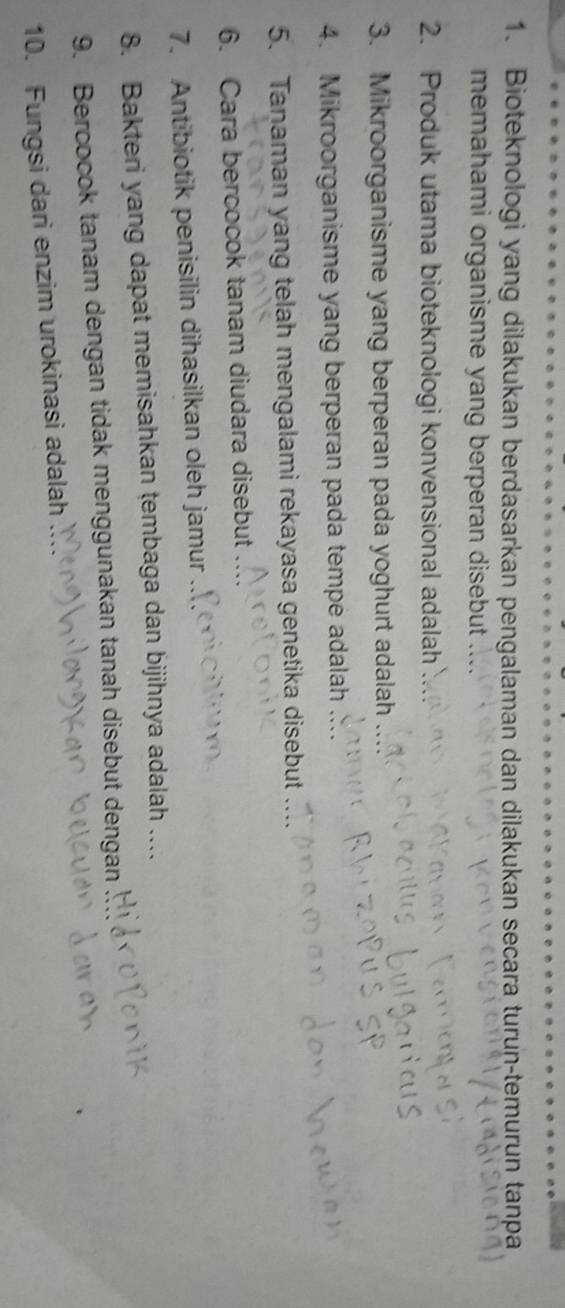 1. Bioteknologi yang dilakukan berdasarkan pengalaman dan dilakukan secara turun-temurun tanpa
memahami organisme yang berperan disebut .... konvensional/tradisional
2. Produk utama bioteknologi konvensional adalah .... makanan
3. Mikroorganisme yang berperan pada yoghurt adalah .... bulgaricus
4. Mikroorganisme yang berperan pada tempe adalah .... Jamur Rhizopus sp
5. Tanaman yang telah mengalami rekayasa genetika disebut .... tanaman dan hewan
transgenik
6. Cara bercocok tanam diudara disebut .... Aeroponik
7. Antibiotik penisilin dihasilkan oleh jamur ....
8. Bakteri yang dapat memisahkan tembaga dan bijihnya adalah ....
9. Bercocok tanam dengan tidak menggunakan tanah disebut dengan .... Hidroponik
10. Fungsi dari enzim urokinasi adalah .... Menghilangkan daran